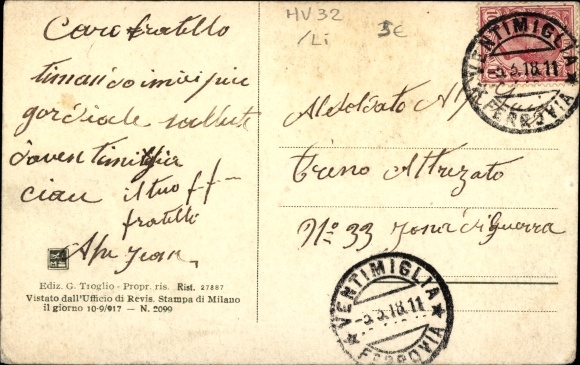 HV32
/Li
5€
Caro fratello
timando i miei piu
gordiale sallute
da ventimiglia
ciau il tuo
fratello
Al Soldato
Treno Attrezato
No 33 zona di guerra
VENTIMIGLIA
-5.3.18.11
★ FERROVIA ★
VENTIMIGLIA
-5.3.18.11
★ FERROVIA ★
Ediz. G. Troglio - Propr. ris. Rist. 27887
Vistato dall'Ufficio di Revis. Stampa di Milano
il giorno 10-9/917 — N. 2099